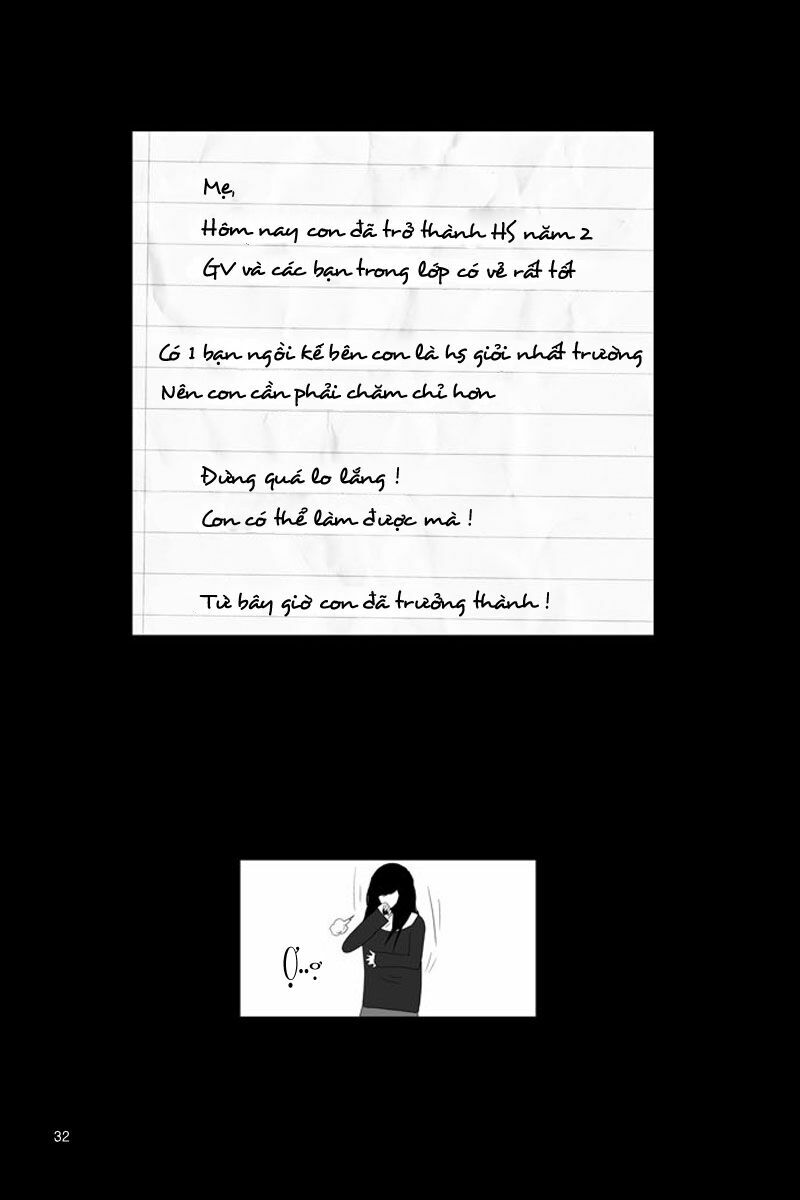 Mẹ,
Hôm nay con đã trở thành HS năm 2
GV và các bạn trong lớp có vẻ rất tốt
Có 1 bạn ngồi kế bên con là hs giỏi nhất trường
Nên con cần phải chăm chỉ hơn
Đừng quá lo lắng !
Con có thể làm được mà !
Từ bây giờ con đã trưởng thành !
Ợ..ợ
32